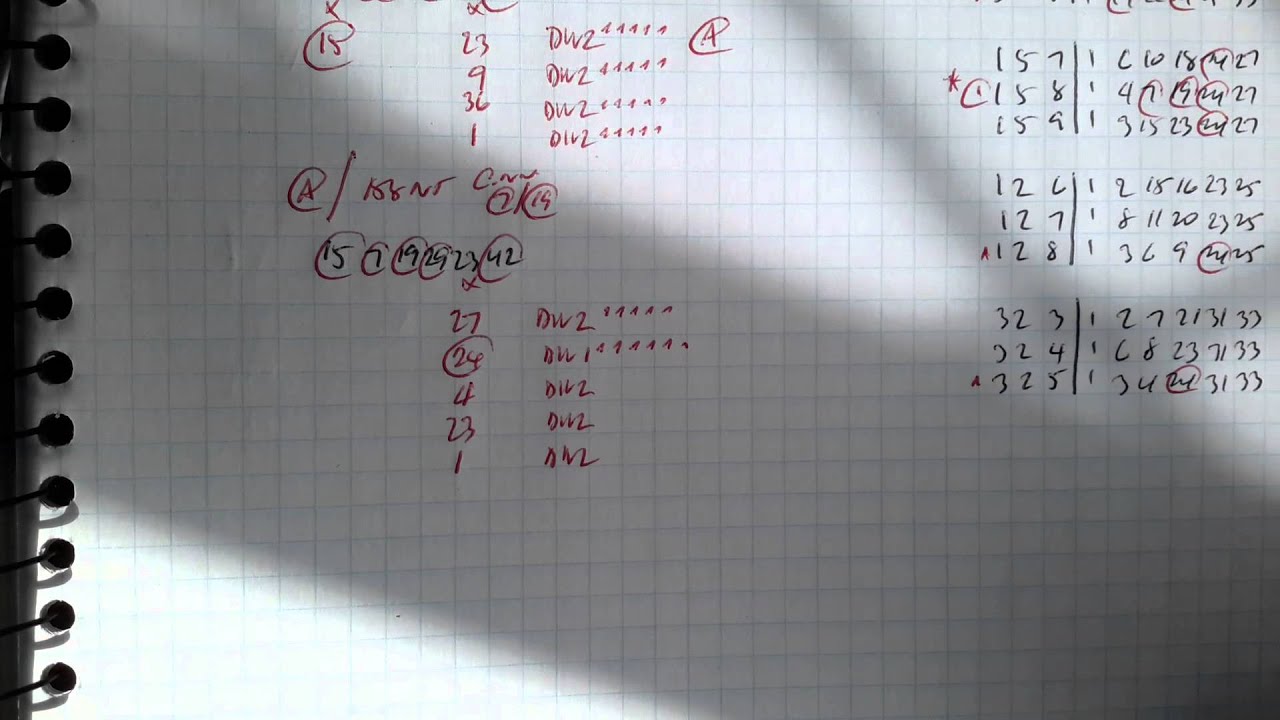 15 23 DW2 ''''' A
9 DW2 '''''
36 DW2 '''''
1 DW2 '''''
A /
7/19
15 7 19 29 23 42
x
27 DW2 '''''
24 DW1 '''''''
4 DW2
23 DW2
1 DW2
1 5 7 | 1 6 10 18 24 27
* 1 1 5 8 | 1 4 7 19 24 27
1 5 9 | 1 3 15 23 24 27
1 2 6 | 1 2 15 16 23 25
1 2 7 | 1 8 11 20 23 25
^ 1 2 8 | 1 3 6 9 24 25
3 2 3 | 1 2 7 21 31 33
3 2 4 | 1 6 8 23 31 33
^ 3 2 5 | 1 3 4 24 31 33